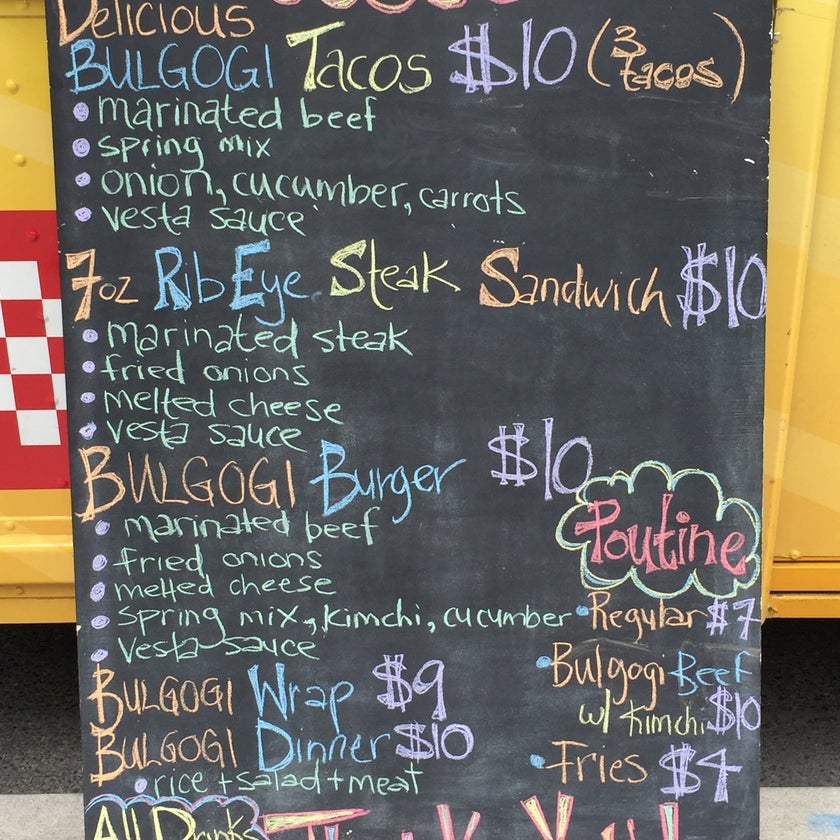 Delicious
BULGOGI Tacos $10 (3 tacos)
• marinated beef
• spring mix
• onion, cucumber, carrots
• vesta sauce
7oz RibEye Steak Sandwich $10
• marinated steak
• fried onions
• melted cheese
• vesta sauce
BULGOGI Burger $10
• marinated beef
• fried onions
• melted cheese
• spring mix, kimchi, cucumber
• vesta sauce
Poutine
• Regular $7
• Bulgogi Beef
w/ Kimchi $10
• Fries $4
BULGOGI Wrap $9
BULGOGI Dinner $10
• rice + salad + meat
All Drinks